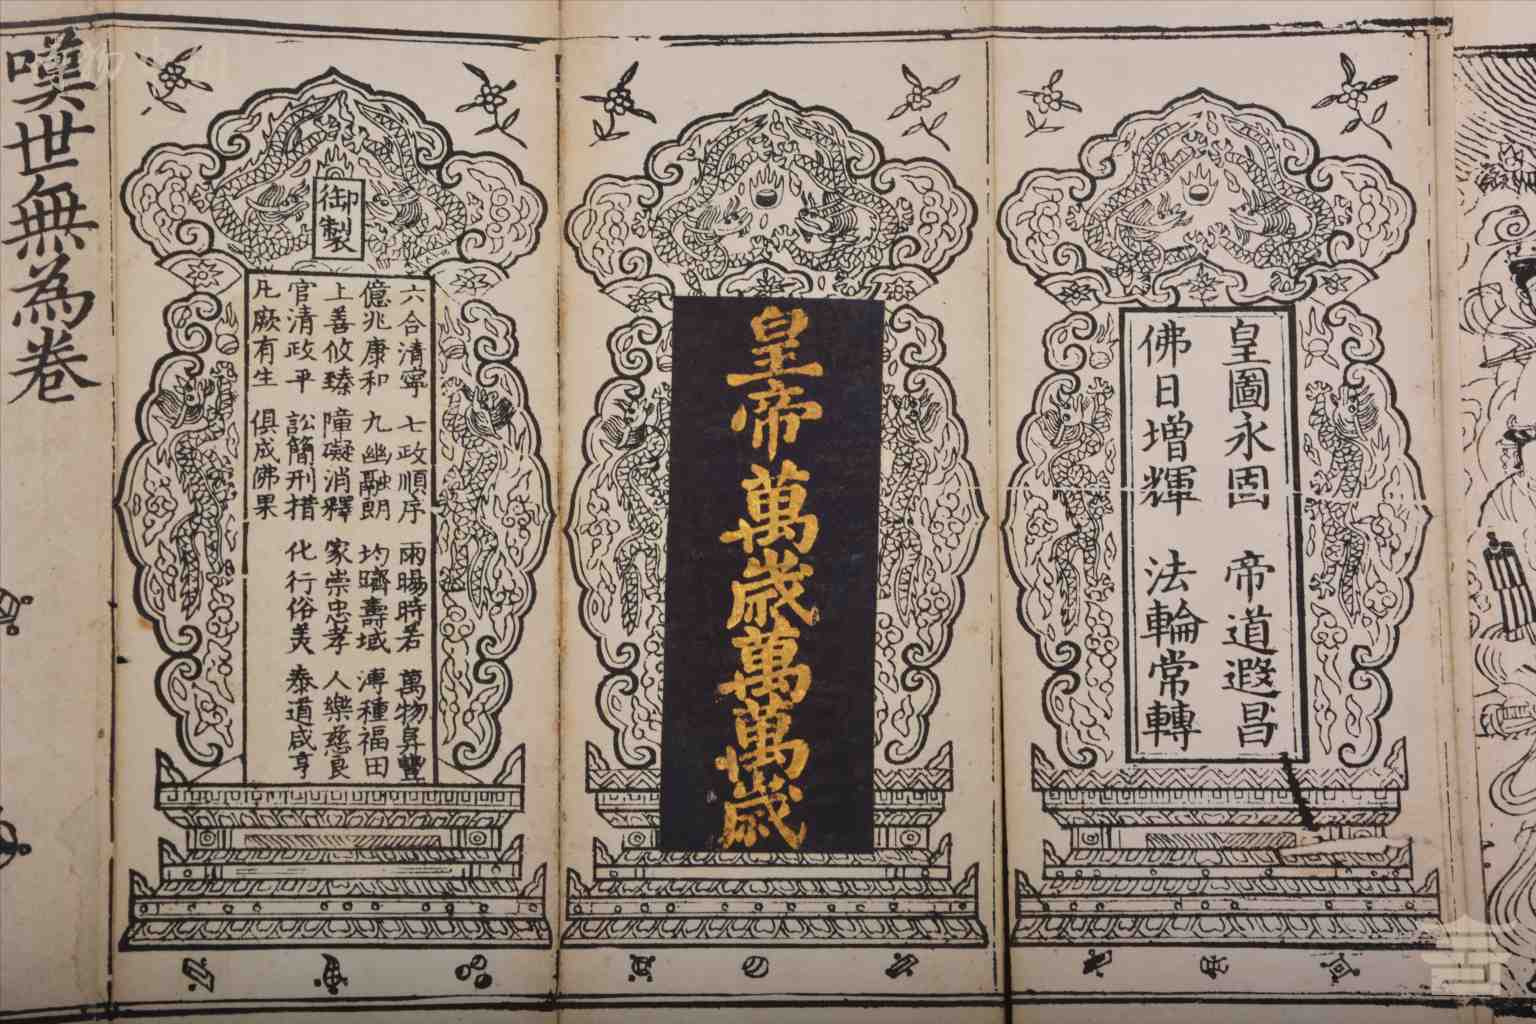 皇圖永固　帝道遐昌
佛日增輝　法輪常轉
皇帝萬歲萬萬歲
御製
六合清寧　七政順序　雨暘時若　萬物阜豐
億兆康和　九幽融朗　均躋壽域　溥種福田
上善攸臻　障礙消釋　家崇忠孝　人樂慈良
官清政平　訟簡刑措　化行俗美　泰道咸亨
凡厥有生　俱成佛果
嘆世無為卷